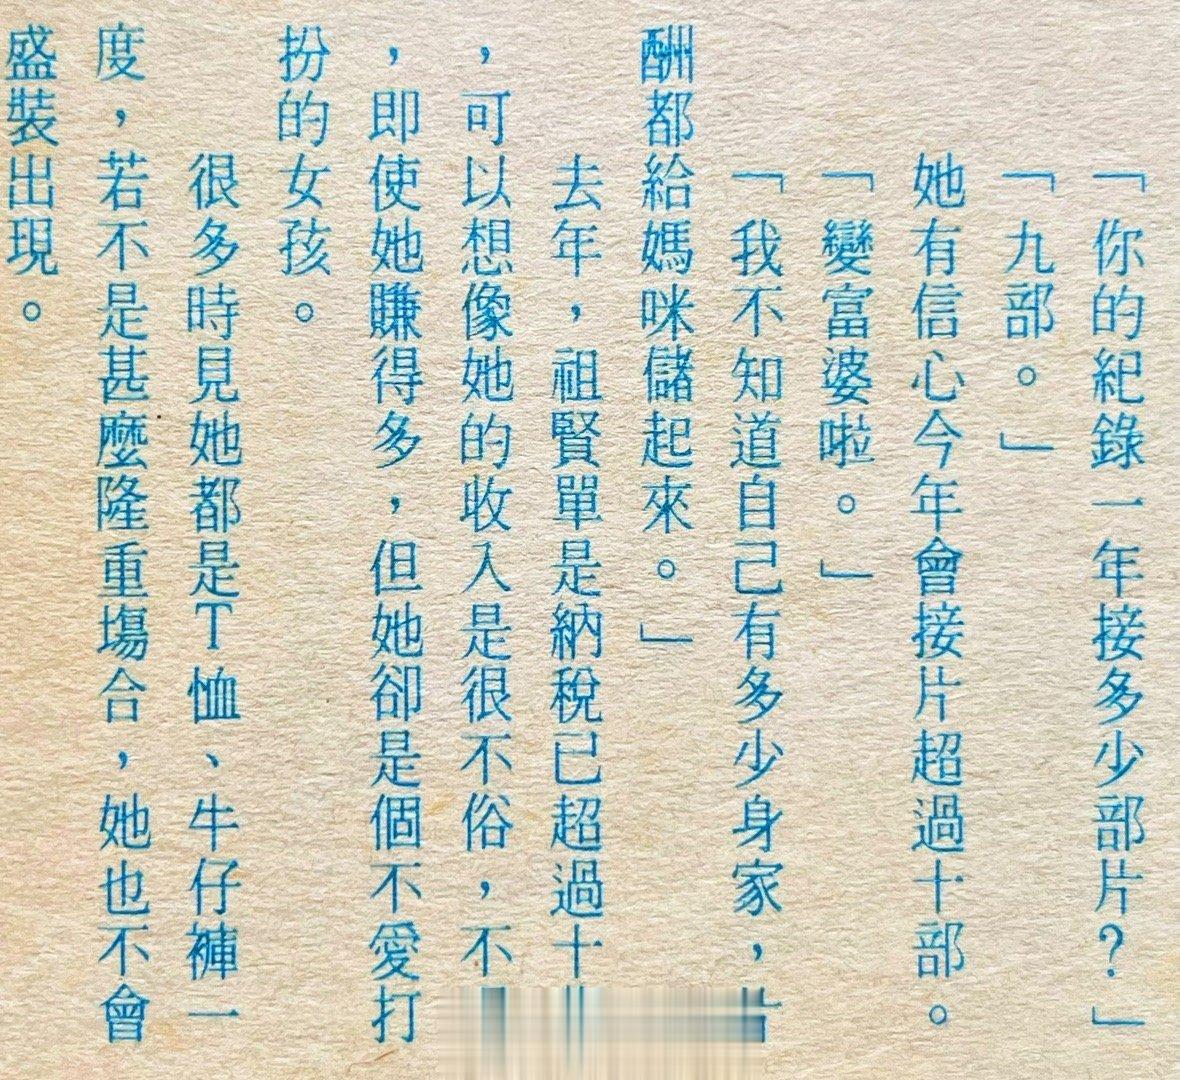 「你的紀錄一年接多少部片？」
「九部。」
她有信心今年會接片超過十部。
「變富婆啦。」
「我不知道自己有多少身家，
酬都給媽咪儲起來。」
去年，祖賢單是納稅已超過十
，可以想像她的收入是很不俗，不
，即使她賺得多，但她卻是個不愛打
扮的女孩。
很多時見她都是T恤、牛仔褲一
度，若不是甚麼隆重塲合，她也不會
盛裝出現。